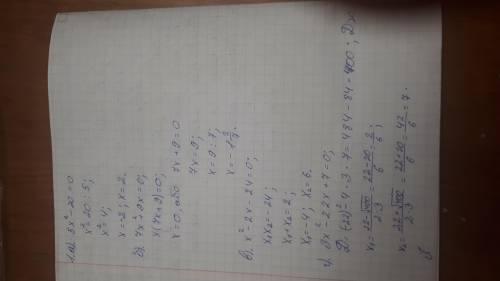 1. а) 5x² - 20 = 0
x² = 20 : 5;
x² = 4;
x = -2; x = 2.
б) 7x² + 9x = 0;
x(7x + 9) = 0;
x = 0, або 7x + 9 = 0
7x = 9;
x = 9 : 7;
x = - 1 2/7.
в) x² - 2x - 24 = 0;
x₁x₂ = -24;
x₁ + x₂ = 2;
x₁ = -4; x₂ = 6.
г) 3x² - 22x + 7 = 0;
D = (-22)² - 4 · 3 · 7 = 484 - 84 = 400; D>
x₁ = (22 - √400)/(2·3) = (22 - 20)/6 = 2/6;
x₂ = (22 + √400)/(2·3) = (22 + 20)/6 = 42/6 = 7.